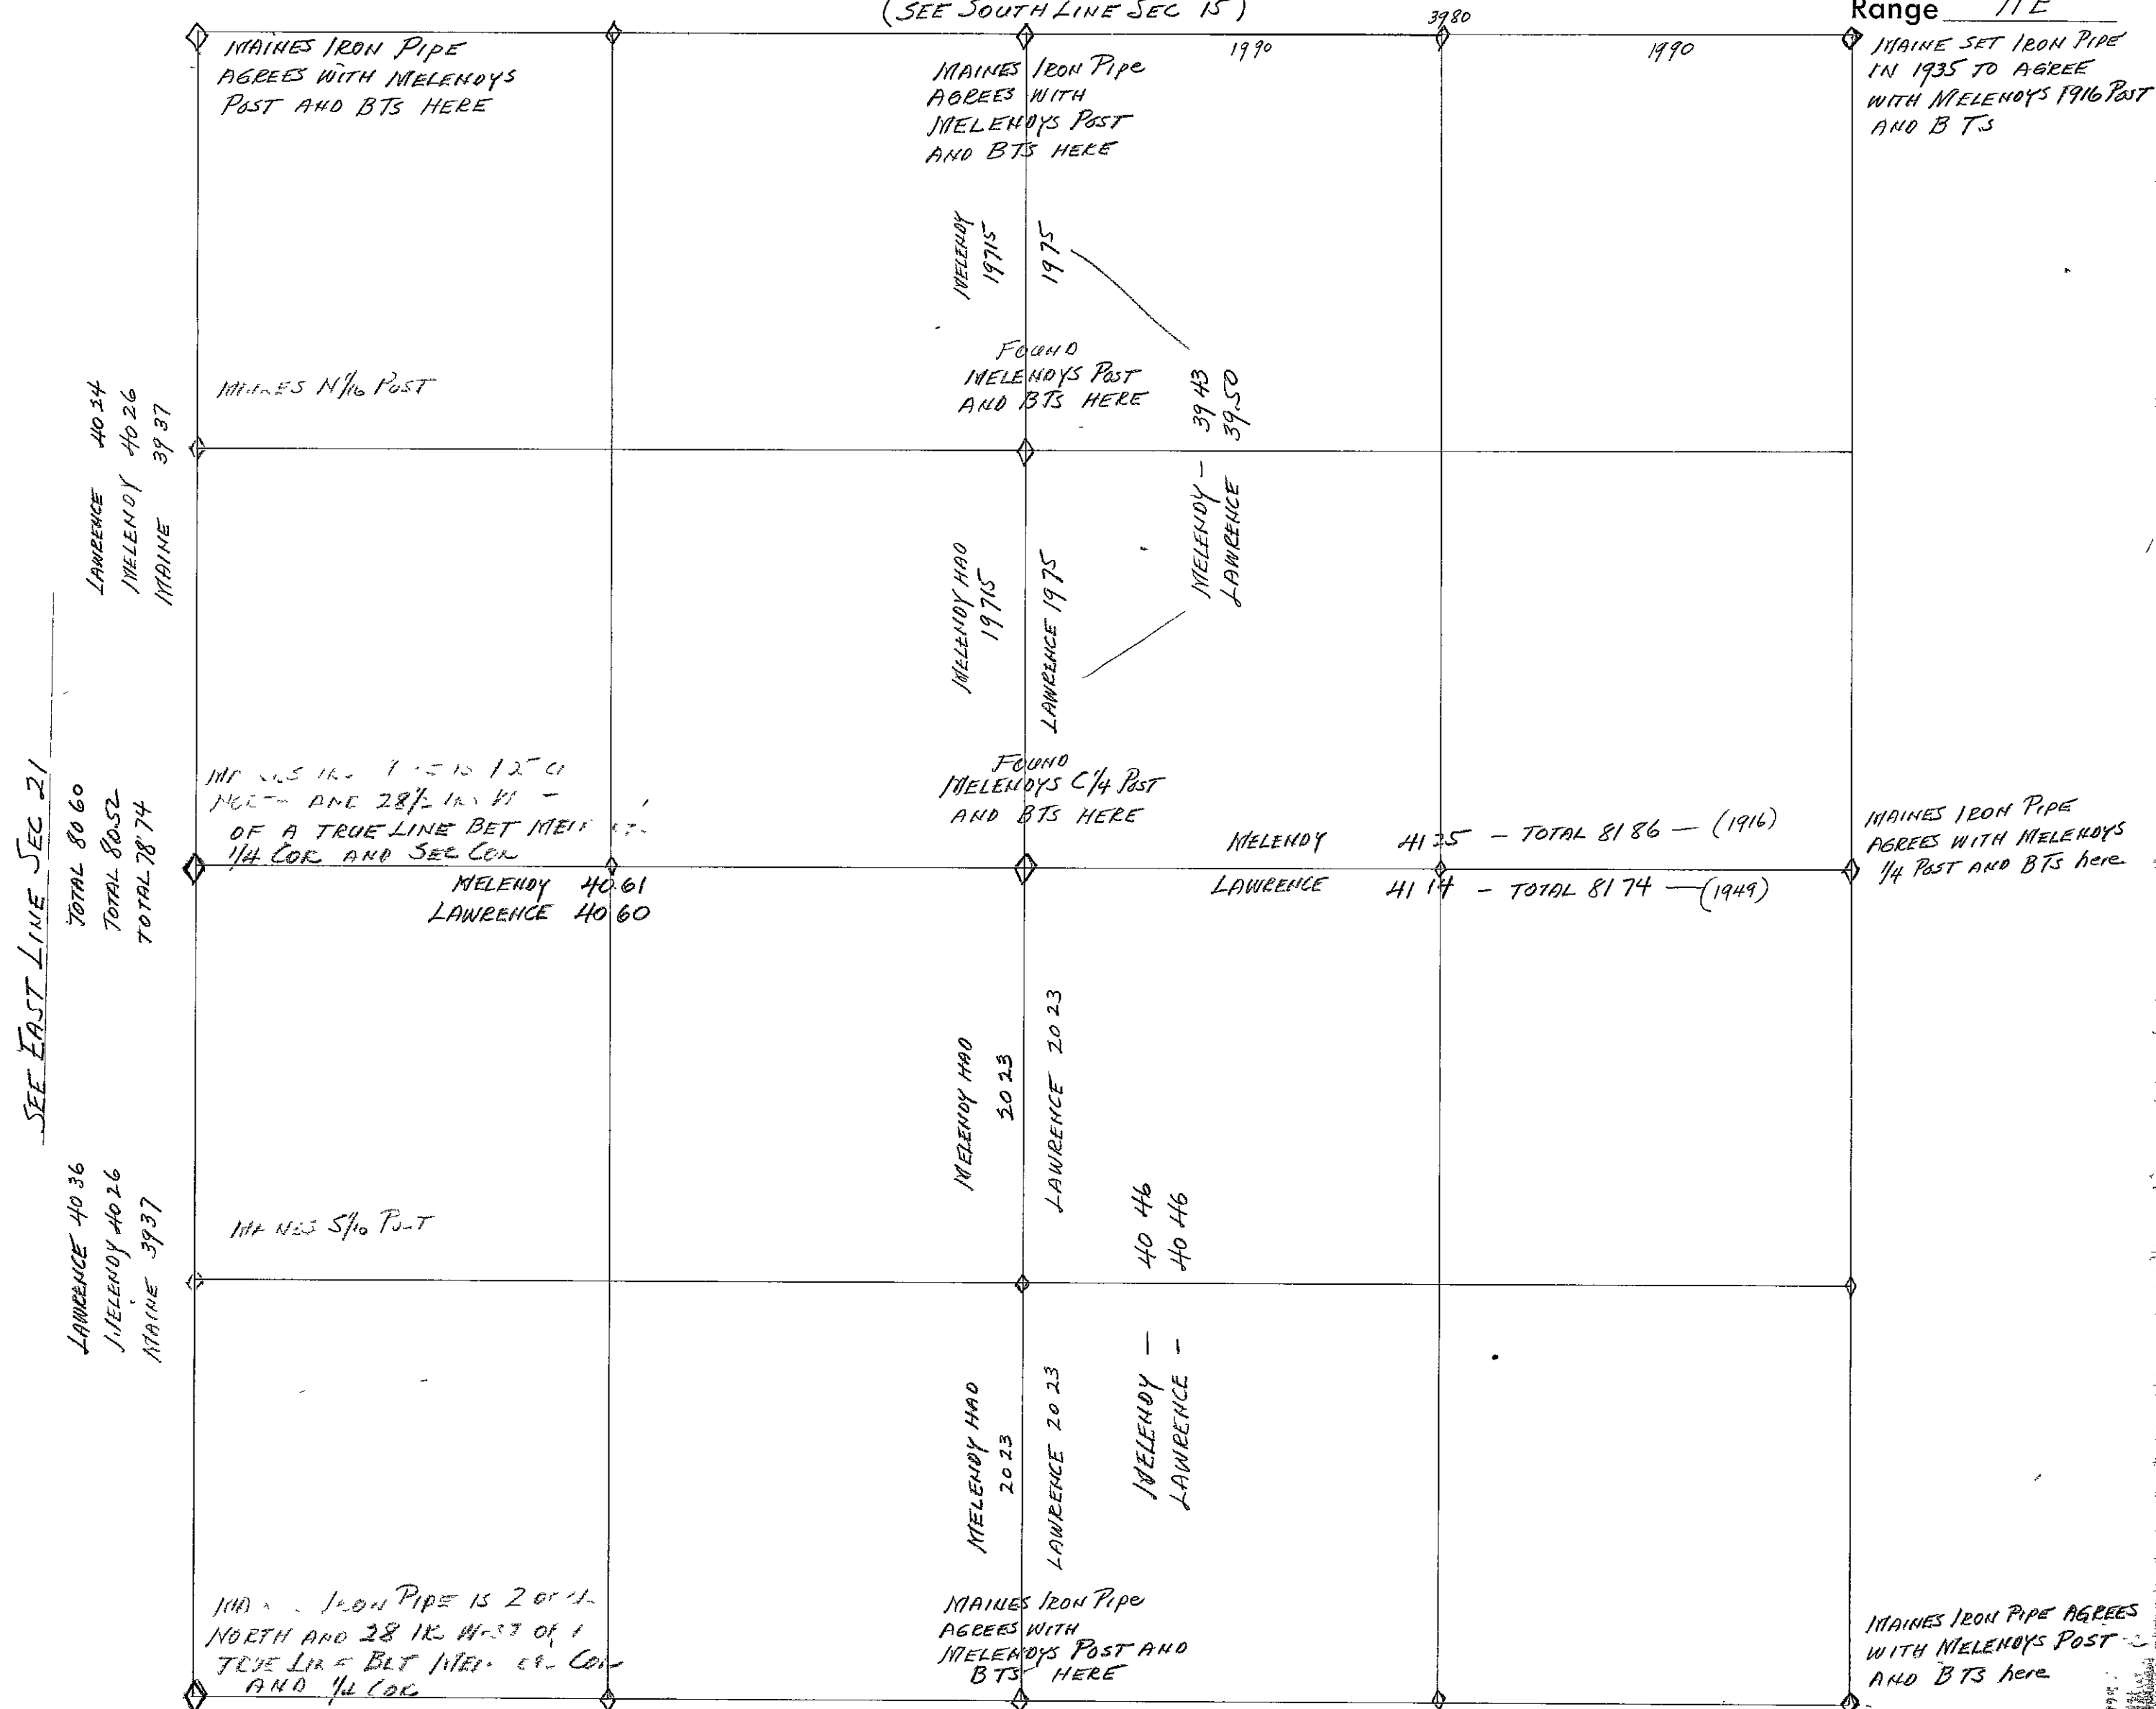 (SEE SOUTH LINE SEC 15)
Range 11E
3980
1990
1990
MAINES IRON PIPE
AGREES WITH MELENDYS
POST AND BTS HERE
MAINES IRON PIPE
AGREES WITH
MELENDYS POST
AND BTS HERE
MAINE SET IRON PIPE
IN 1935 TO AGREE
WITH MELENDYS 1916 POST
AND BTS
MELENDY
19715
1975
FOUND
MELENDYS POST
AND BTS HERE
MELENDY - 3943
LAWRENCE 39.50
N 1/16 POST
LAWRENCE 4024
MELENDY 4026
MAINE 3937
MELENDY HAD
19715
LAWRENCE 1975
SEE EAST LINE SEC 21
TOTAL 8060
TOTAL 80.52
TOTAL 7874
AND 28 1/2
OF A TRUE LINE BET
1/4 COR AND SEC COR
FOUND
MELENDYS C 1/4 POST
AND BTS HERE
MELENDY 4125 - TOTAL 8186 - (1916)
LAWRENCE 4114 - TOTAL 8174 - (1949)
MELENDY 40.61
LAWRENCE 4060
MAINES IRON PIPE
AGREES WITH MELENDYS
1/4 POST AND BTS here
MELENDY HAD
2023
LAWRENCE 2023
LAWRENCE 4036
MELENDY 4026
MAINE 3937
S 1/16
MELENDY - 4046
LAWRENCE - 4046
MELENDY HAD
2023
LAWRENCE 2023
IRON PIPE IS 2
NORTH AND 28 WEST OF
TRUE LINE BET COR
AND 1/4 COR
MAINES IRON PIPE
AGREES WITH
MELENDYS POST AND
BTS HERE
MAINES IRON PIPE AGREES
WITH MELENDYS POST
AND BTS here